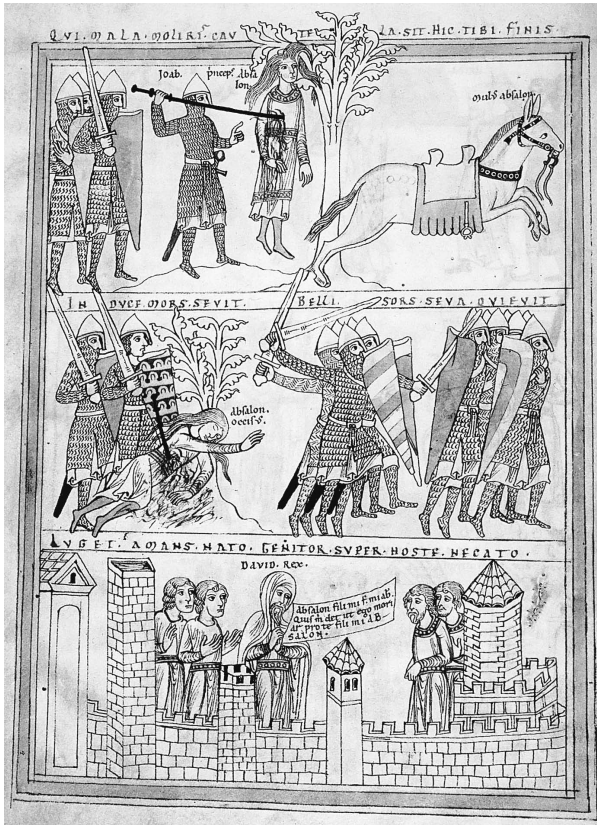 QVI·MALA·MOLIRIS CAV TE LA·SIT·HIC·TIBI·FINIS
Joab. Absa
lon
absalon.
IN DVCE·MORS·SEVIT. BELLI· SORS·SEVA·QVIEVIT
Absalon.
occisꝰ.
LVGET· AMANS·NATO· GENITOR·SVPER·HOSTE·NECATO·
DAVID·REX·
Absalon fili mi f. mi ab.
Quis m̄ det ut ego mori
ar pro te fili mi AB-
SALON.